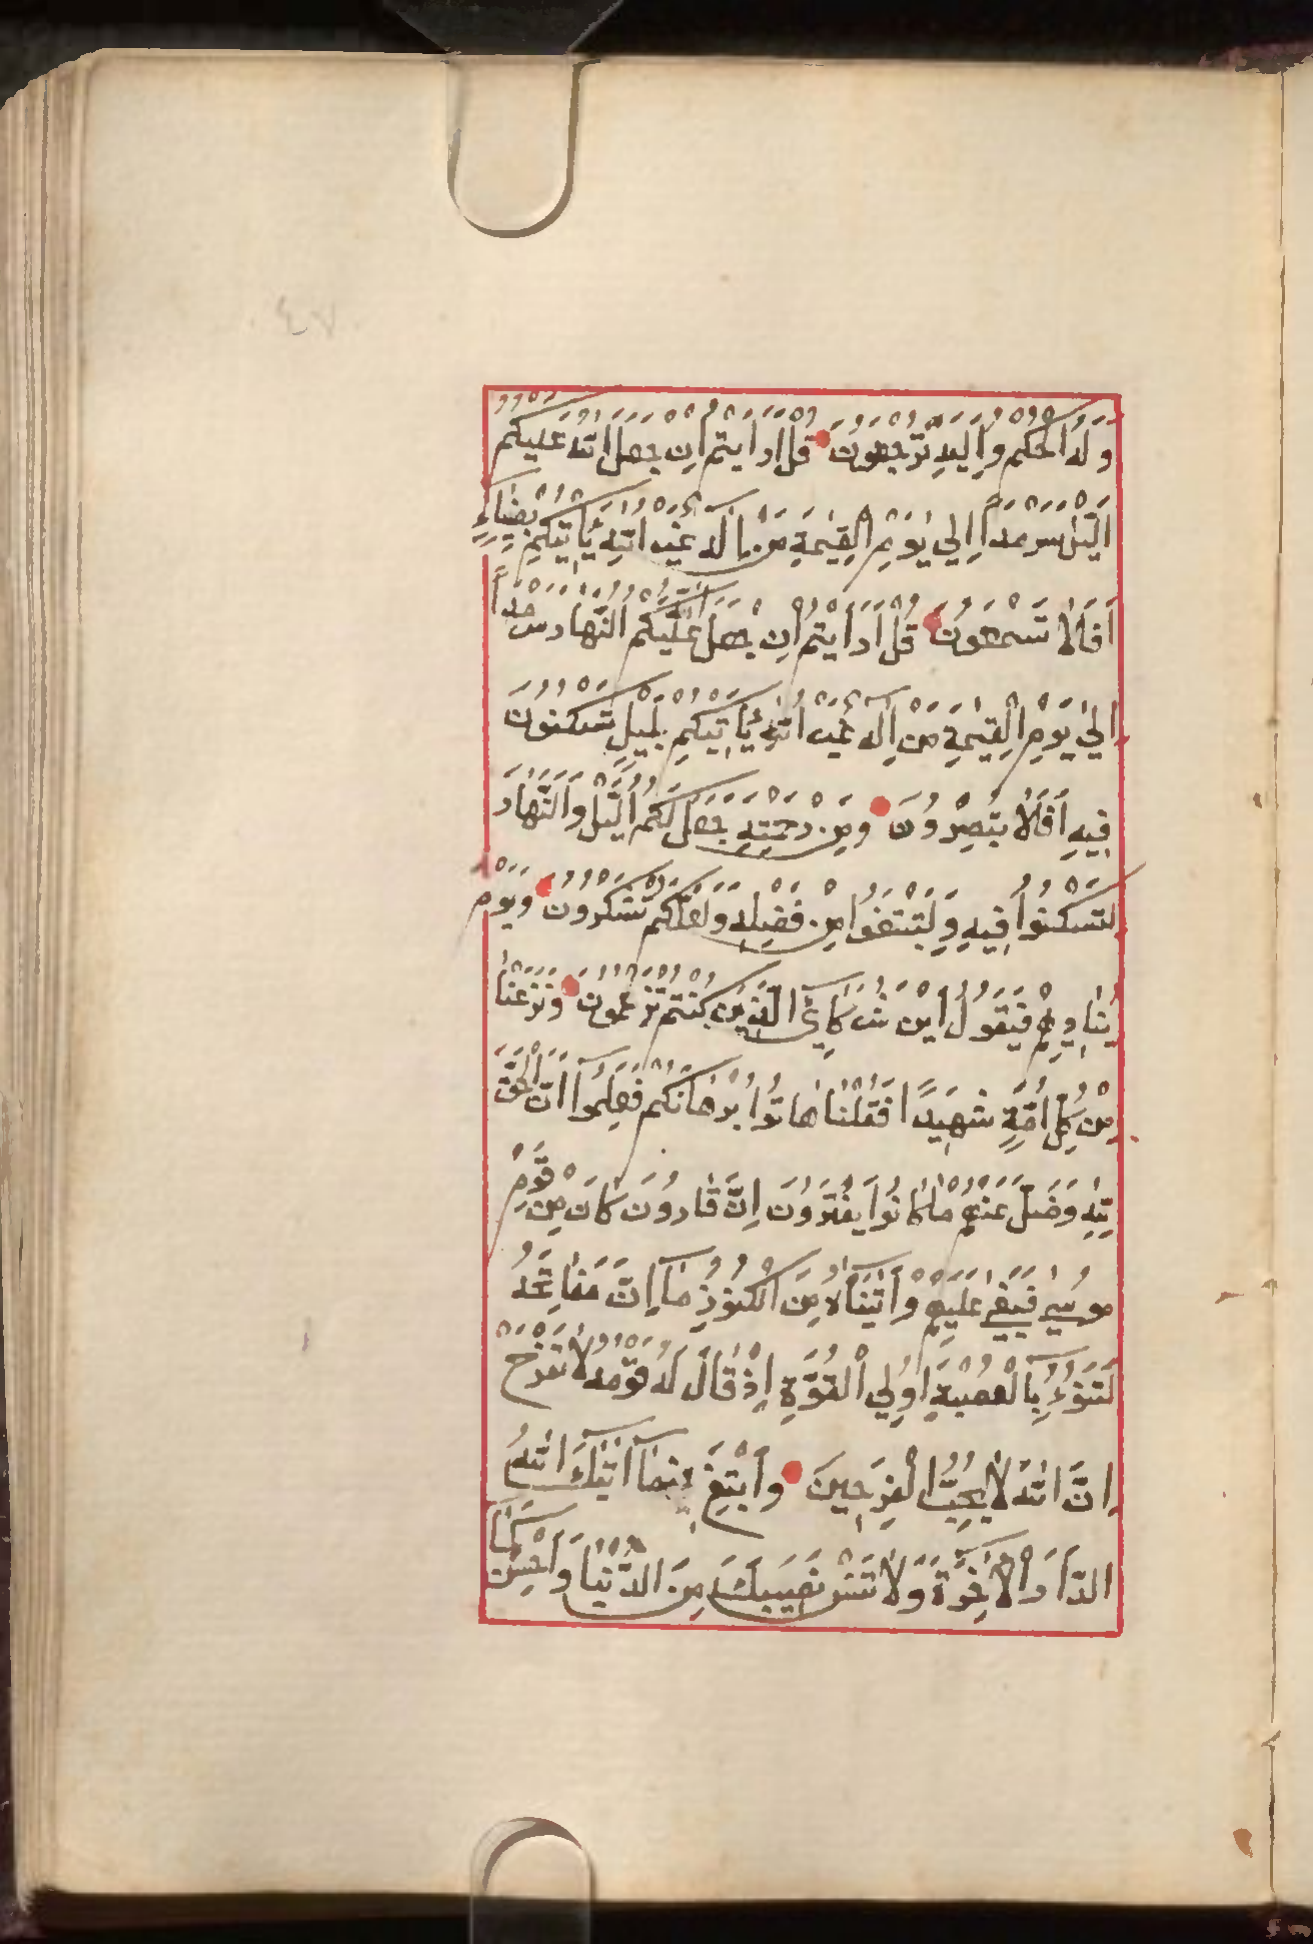 وَلَهُ الْحُكْمُ وَاِلَيْهِ تُرْجَعُونَ قُلْ اَرَاَيْتُمْ اِنْ جَعَلَ اللّٰهُ عَلَيْكُمُ
الَّيْلَ سَرْمَدًا اِلٰي يَوْمِ الْقِيٰمَةِ مَنْ اِلٰهٌ غَيْرُ اللّٰهِ يَاْتِيْكُمْ بِضِيَاءٍ
اَفَلَا تَسْمَعُونَ قُلْ اَرَاَيْتُمْ اِنْ جَعَلَ اللّٰهُ عَلَيْكُمُ النَّهَارَ سَرْمَدًا
اِلٰي يَوْمِ الْقِيٰمَةِ مَنْ اِلٰهٌ غَيْرُ اللّٰهِ يَاْتِيْكُمْ بِلَيْلٍ تَسْكُنُونَ
فِيهِ اَفَلَا تُبْصِرُونَ وَمِنْ رَحْمَتِهِ جَعَلَ لَكُمُ الَّيْلَ وَالنَّهَارَ
لِتَسْكُنُوا فِيهِ وَلِتَبْتَغُوا مِنْ فَضْلِهِ وَلَعَلَّكُمْ تَشْكُرُونَ وَيَوْمَ
يُنَادِيهِمْ فَيَقُولُ اَيْنَ شُرَكَاءِيَ الَّذِينَ كُنْتُمْ تَزْعُمُونَ وَنَزَعْنَا
مِنْ كُلِّ اُمَّةٍ شَهِيدًا فَقُلْنَا هَاتُوا بُرْهَانَكُمْ فَعَلِمُوا اَنَّ الْحَقَّ
لِلّٰهِ وَضَلَّ عَنْهُمْ مَا كَانُوا يَفْتَرُونَ اِنَّ قَارُونَ كَانَ مِنْ قَوْمِ
مُوسٰي فَبَغٰي عَلَيْهِمْ وَاٰتَيْنَاهُ مِنَ الْكُنُوزِ مَا اِنَّ مَفَاتِحَهُ
لَتَنُوءُ بِالْعُصْبَةِ اُولِي الْقُوَّةِ اِذْ قَالَ لَهُ قَوْمُهُ لَا تَفْرَحْ
اِنَّ اللّٰهَ لَا يُحِبُّ الْفَرِحِينَ وَابْتَغِ فِيمَا اٰتٰيكَ اللّٰهُ
الدَّارَ الْاٰخِرَةَ وَلَا تَنْسَ نَصِيبَكَ مِنَ الدُّنْيَا وَاَحْسِنْ كَمَا